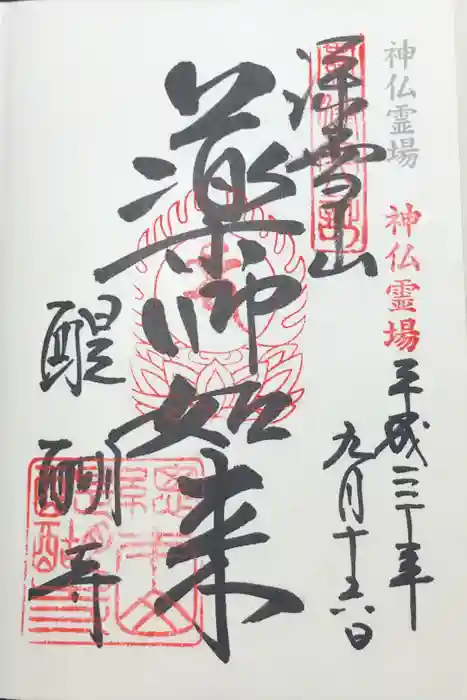 神仏霊場
神仏霊場
平成二二年
九月十六日
深雪山
薬師如来
醍醐寺